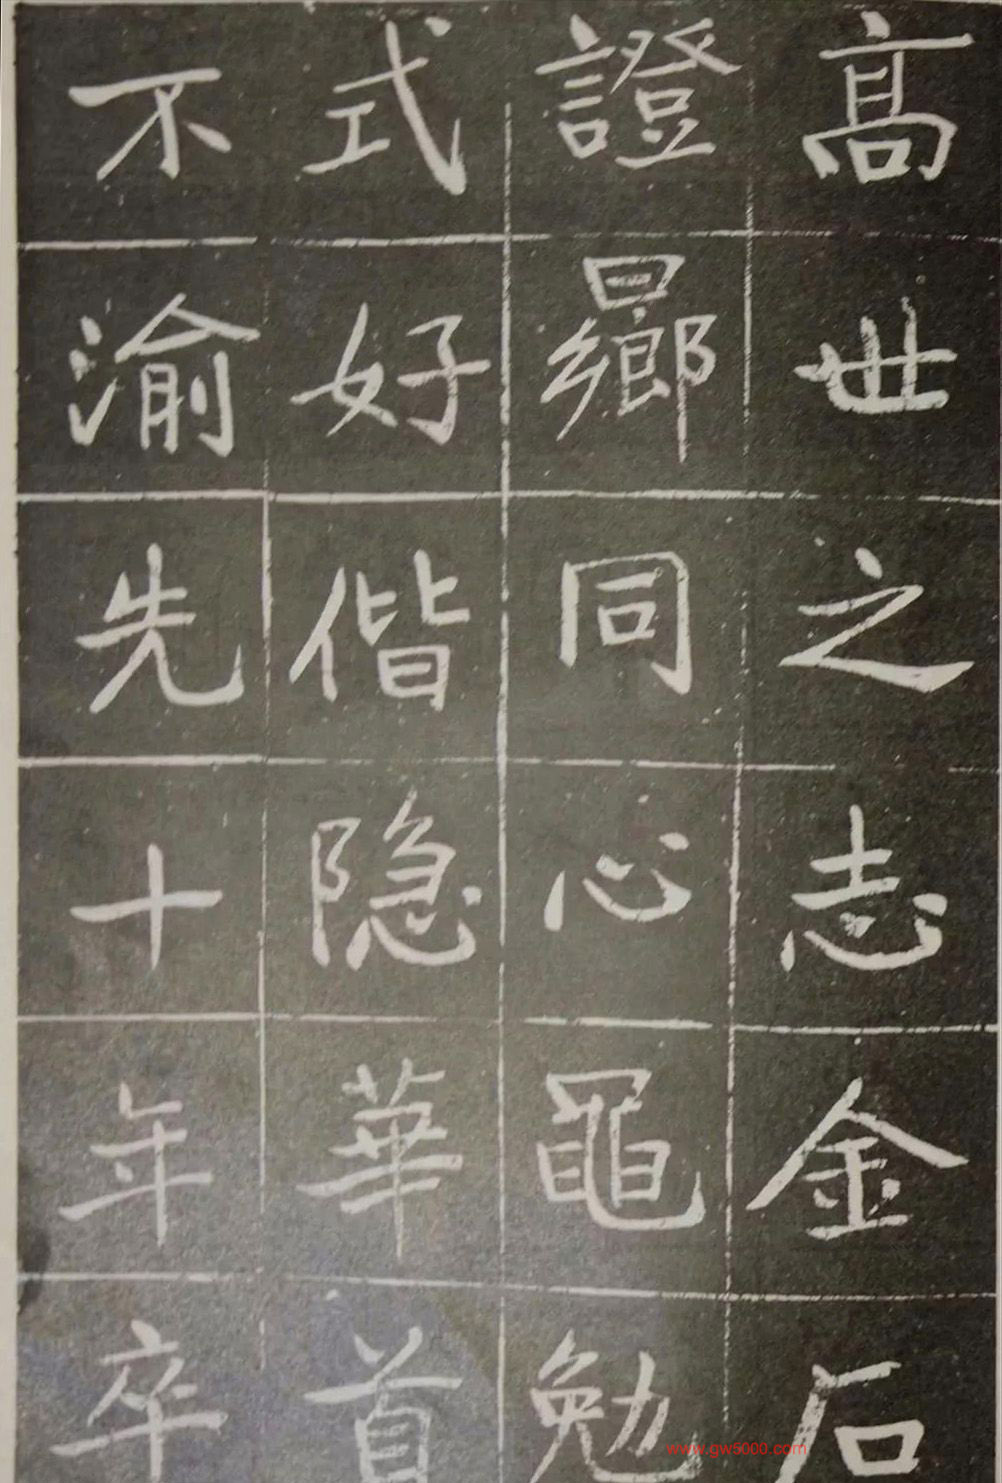 髙世之志金石
證曏同心黽勉
式好偕隐華首
不渝先十年卒
www.gw5000.com